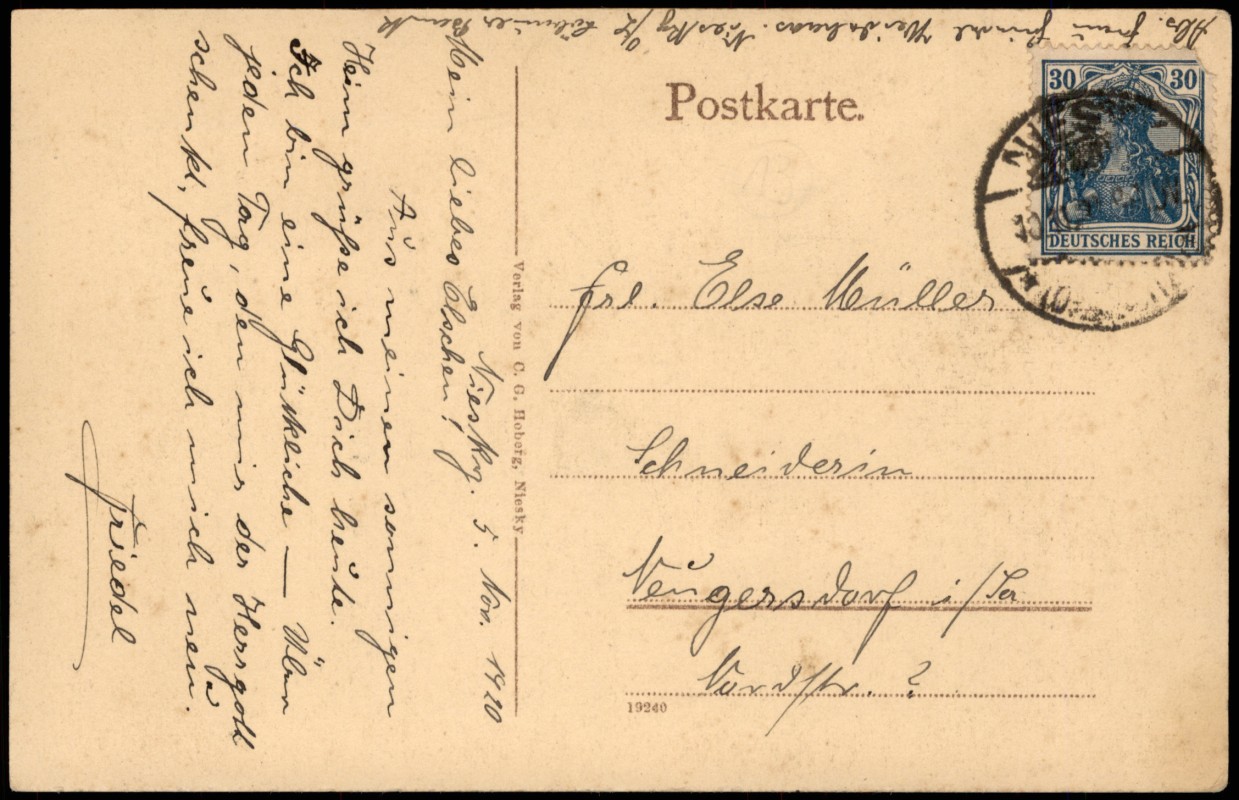 Abs. Frau Friedel Niesky O/L
Postkarte.
30 30
DEUTSCHES REICH
NIESKY
Niesky. 5. Nov. 1920
Mein liebes Elschen!
Aus meinen sonnigen
Heim grüße ich Dich heute.
Ich bin eine Glückliche — Über
jeden Tag, den mir der Herrgott
schenkt, freue ich mich neu.
Friedel
Verlag von C. G. Hoberg, Niesky
Frl. Else Müller
Schneiderin
Neugersdorf i/Sa
Nordstr. ?
19240